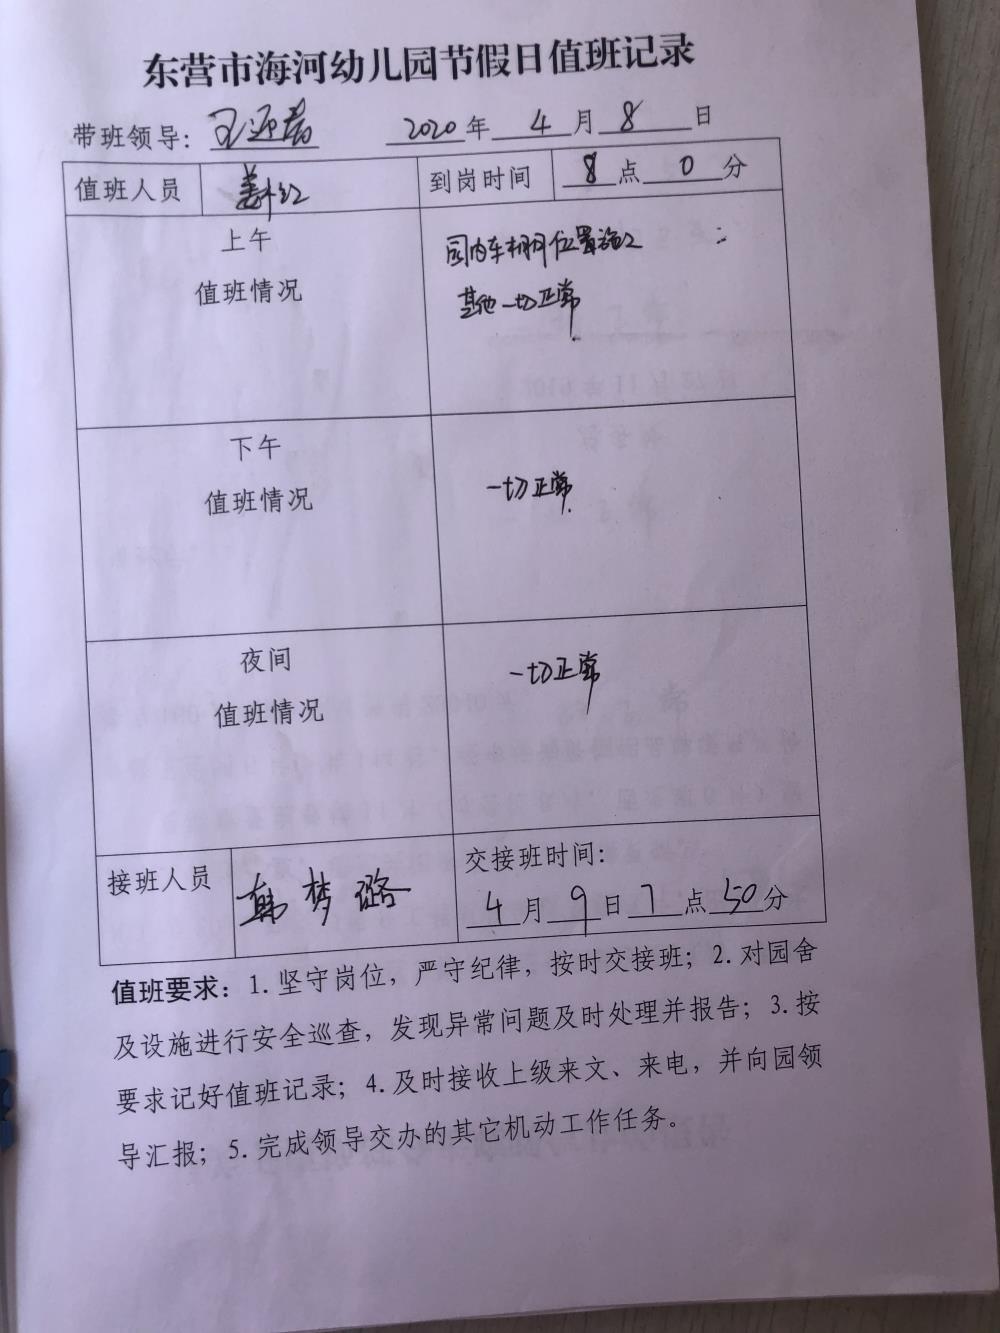 东营市海河幼儿园节假日值班记录
带班领导: 王 2020年 4 月 8 日
值班人员 姜 红 到岗时间 8 点 0 分
上午
值班情况
园内车棚位置施工
其他一切正常
下午
值班情况
一切正常
夜间
值班情况
一切正常
接班人员 韩梦璐 交接班时间:
4 月 9 日 7 点 50 分
值班要求: 1. 坚守岗位，严守纪律，按时交接班；2. 对园舍
及设施进行安全巡查，发现异常问题及时处理并报告；3. 按
要求记好值班记录；4. 及时接收上级来文、来电，并向园领
导汇报；5. 完成领导交办的其它机动工作任务。